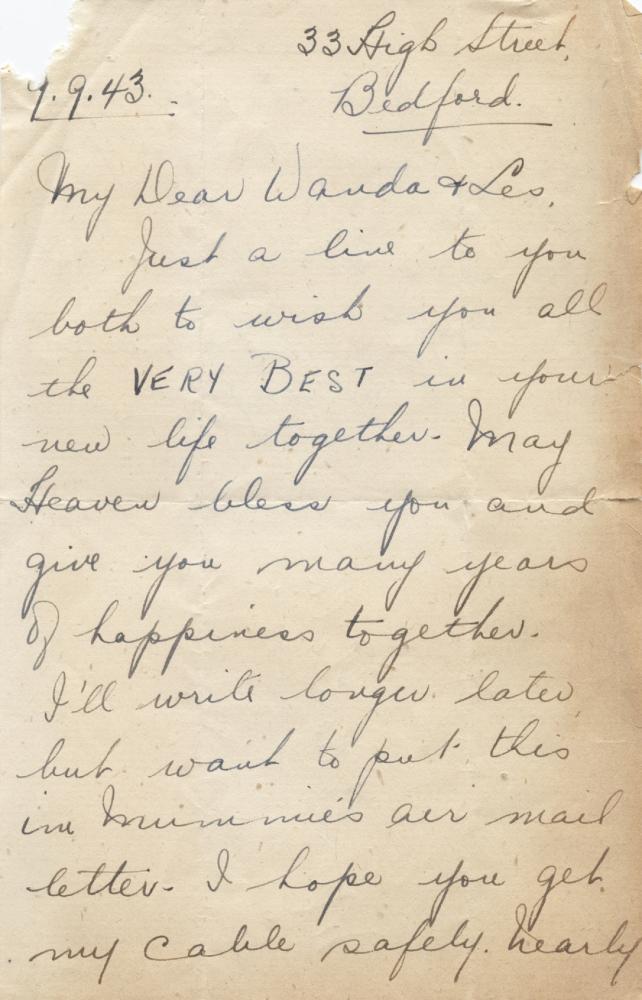 33 High Street,
9.9.43.
Bedford.
My Dear Wanda & Les,
Just a line to you
both to wish you all
the VERY BEST in your
new life together. May
Heaven bless you and
give you many years
of happiness together.
I'll write longer later
but want to put this
in Mummie's air mail
letter. I hope you get
my cable safely. Nearly